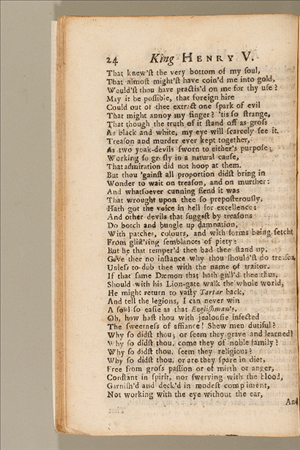 24 King HENRY V.
That knew'st the very bottom of my soul,
That almost might'st have coin'd me into gold,
Would'st thou have practis'd on me for thy use?
May it be possible, that foreign hire
Could out of thee extract one spark of evil
That might annoy my finger? 'tis so strange,
That though the truth of it stand off as gross
As black and white, my eye will scarcely see it.
Treason and murder ever kept together,
As two yoak-devils sworn to either's purpose,
Working so grosly in a natural cause,
That admiration did not hoop at them.
But thou 'gainst all proportion didst bring in
Wonder to wait on treason, and on murther:
And whatsoever cunning fiend it was
That wrought upon thee so preposterously,
Hath got the voice in hell for excellence:
And other devils that suggest by treasons
Do botch and bungle up damnation,
With patches, colours, and with forms being fetcht
From glist'ring semblances of piety:
But he that temper'd thee bad thee stand up,
Gave thee no instance why thou should'st do treason,
Unless to dub thee with the name of traitor.
If that same Dæmon that hath gull'd thee thus,
Should with his Lion-gate walk the whole world,
He might return to vasty Tartar back,
And tell the legions, I can never win
A soul so easie as that Englishman's.
Oh, how hast thou with jealousie infected
The sweetness of affiance! Shew men dutiful?
Why so didst thou: or seem they grave and learned?
Why so didst thou. come they of noble family?
Why so didst thou. seem they religious?
Why so didst thou. or are they spare in diet,
Free from gross passion or of mirth or anger,
Constant in spirit, nor swerving with the blood,
Garnish'd and deck'd in modest compliment,
Not working with the eye without the ear,
And